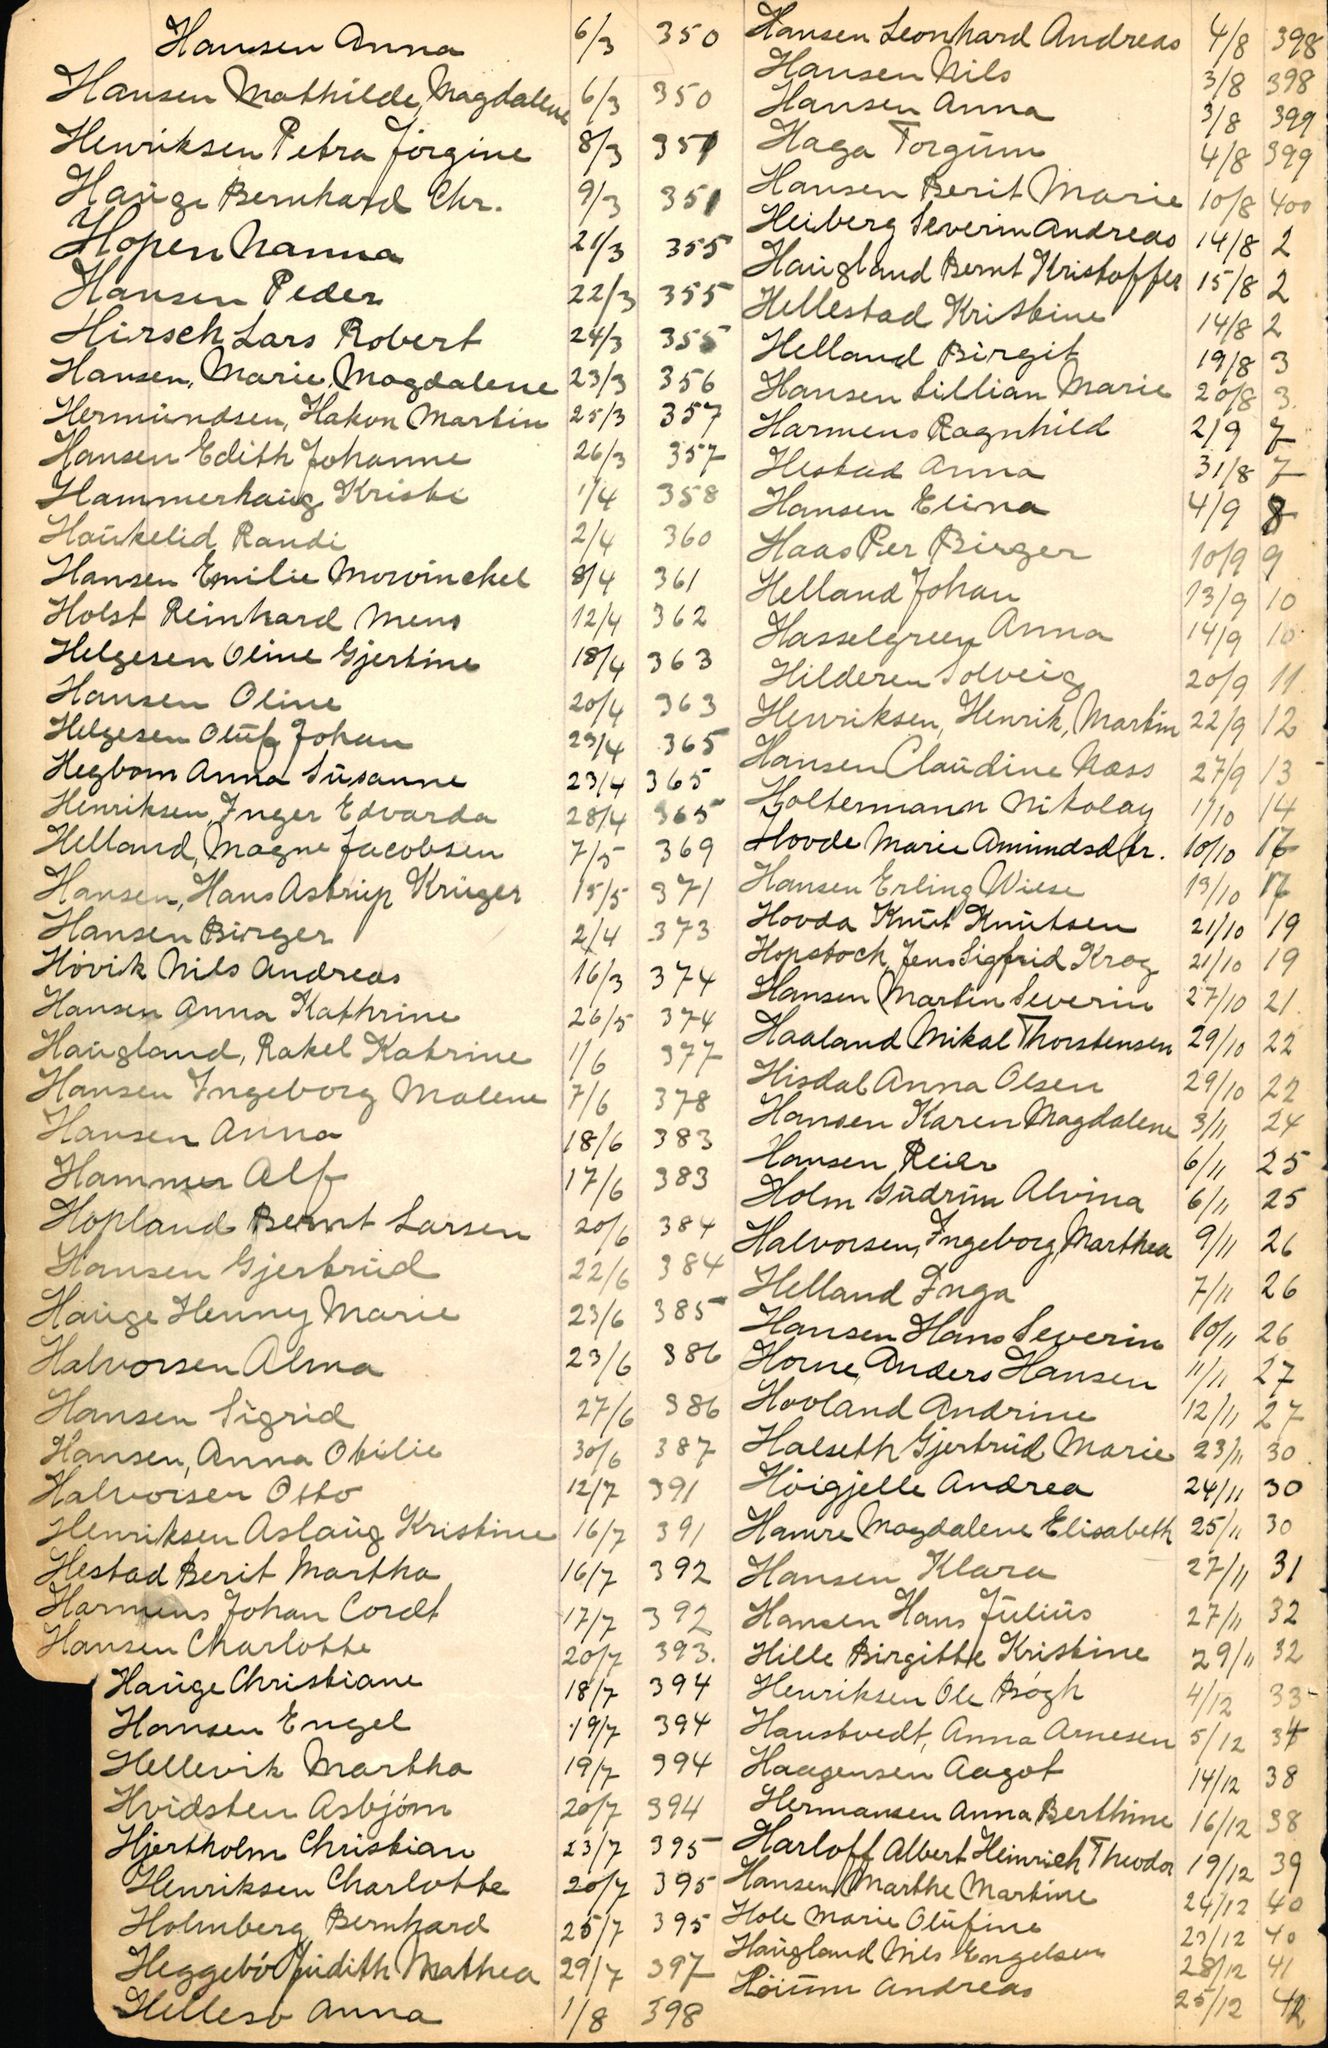 Hansen Anna 6/3 350
Hansen Mathilde Magdalene 6/3 350
Henriksen Petra Jörgine 8/3 351
Hauge Bernhard Chr. 9/3 351
Hopen Nanna 21/3 355
Hansen Peder 22/3 355
Hirsch Lars Robert 24/3 355
Hansen, Marie, Magdalene 23/3 356
Hermundsen, Hakon Martin 25/3 357
Hansen Edith Johanne 26/3 357
Hammerhaug Kristi 1/4 358
Haukelid Randi 2/4 360
Hansen Emilie Mowinckel 8/4 361
Holst Reinhard Mens 12/4 362
Helgesen Oline Gjertine 18/4 363
Hansen Oline 20/4 363
Helgesen Oluf Johan 23/4 365
Hegbom Anna Susanne 23/4 365
Henriksen, Inger Edvarda 28/4 365
Helland, Magne Jacobsen 7/5 369
Hansen, Hans Astrup Krüger 15/5 371
Hansen Birger 2/4 373
Hövik Nils Andreas 16/3 374
Hansen Anna Kathrine 26/5 374
Haugland, Rakel Katrine 1/6 377
Hansen Ingeborg Malene 7/6 378
Hansen Anna 18/6 383
Hammer Alf 17/6 383
Hopland Bernt Larsen 20/6 384
Hansen Gjertrud 22/6 384
Hauge Henny Marie 23/6 385
Halvorsen Alma 23/6 386
Hansen Sigrid 27/6 386
Hansen, Anna Otilie 30/6 387
Halvorsen Otto 12/7 391
Henriksen Aslaug Kristine 16/7 391
Hestad Berit Martha 16/7 392
Harmens Johan Cordt 17/7 392
Hansen Charlotte 20/7 393.
Hauge Christiane 18/7 394
Hansen Engel 19/7 394
Hellevik Martha 19/7 394
Hvidsten Asbjörn 20/7 394
Hjertholm Christian 23/7 395
Henriksen Charlotte 20/7 395
Holmberg Bernhard 25/7 395
Heggebö Judith Mathea 29/7 397
Hellesö Anna 1/8 398
Hansen Leonhard Andreas 4/8 398
Hansen Nils 3/8 398
Hansen Anna 3/8 399
Haga Torgum 4/8 399
Hansen Berit Marie 10/8 400
Heiberg Severin Andreas 14/8 2
Haugland Bernt Kristoffer 15/8 2
Hellestad Kristine 14/8 2
Helland Birgit 19/8 3
Hansen Lillian Marie 20/8 3.
Harmens Ragnhild 2/9 7
Hestad Anna 31/8 7
Hansen Elina 4/9 8
Haas Per Birger 10/9 9
Helland Johan 13/9 10
Hasselgreen Anna 14/9 10
Hilderen Solveig 20/9 11.
Henriksen, Henrik, Martin 22/9 12
Hansen Claudine Næss 27/9 13
Holtermann Nikolay 1/10 14
Hovde Marie Amundsdtr. 10/10 16
Hansen Erling Wiese 13/10 16
Hovda Knut Knutsen 21/10 19
Hopstock, Jens Sigfrid Krag 21/10 19
Hansen Martin Severin 27/10 21.
Haaland Mikal Thorstensen 29/10 22
Hisdal Anna Olsen 29/10 22
Hansen Karen Magdalene 3/11 24
Hansen Reier 6/11 25
Holm Gudrun Alvina 6/11 25
Halvorsen, Ingeborg, Marthea 9/11 26
Helland Inga 7/11 26
Hansen Hans Severin 10/11 26
Horne, Anders Hansen 11/11 27
Hovland Andrine 12/11 27
Halseth Gjertrud Marie 23/11 30
Höigjelle Andrea 24/11 30
Hamre Magdalene Elisabeth 25/11 30
Hansen Klara 27/11 31
Hansen Hans Julius 27/11 32
Hille Birgitte Kristine 29/11 32
Henriksen Ole Bögh 4/12 33
Haustvedt, Anna Arnesen 5/12 34
Haagensen Aagot 14/12 38
Hermansen Anna Berthine 16/12 38
Harloff Albert Heinrich Theodor 19/12 39
Hansen Marthe Martine 24/12 40
Hole Marie Olufine 23/12 40
Haugland Nils Engelsen 28/12 41
Höium Andreas 25/12 42